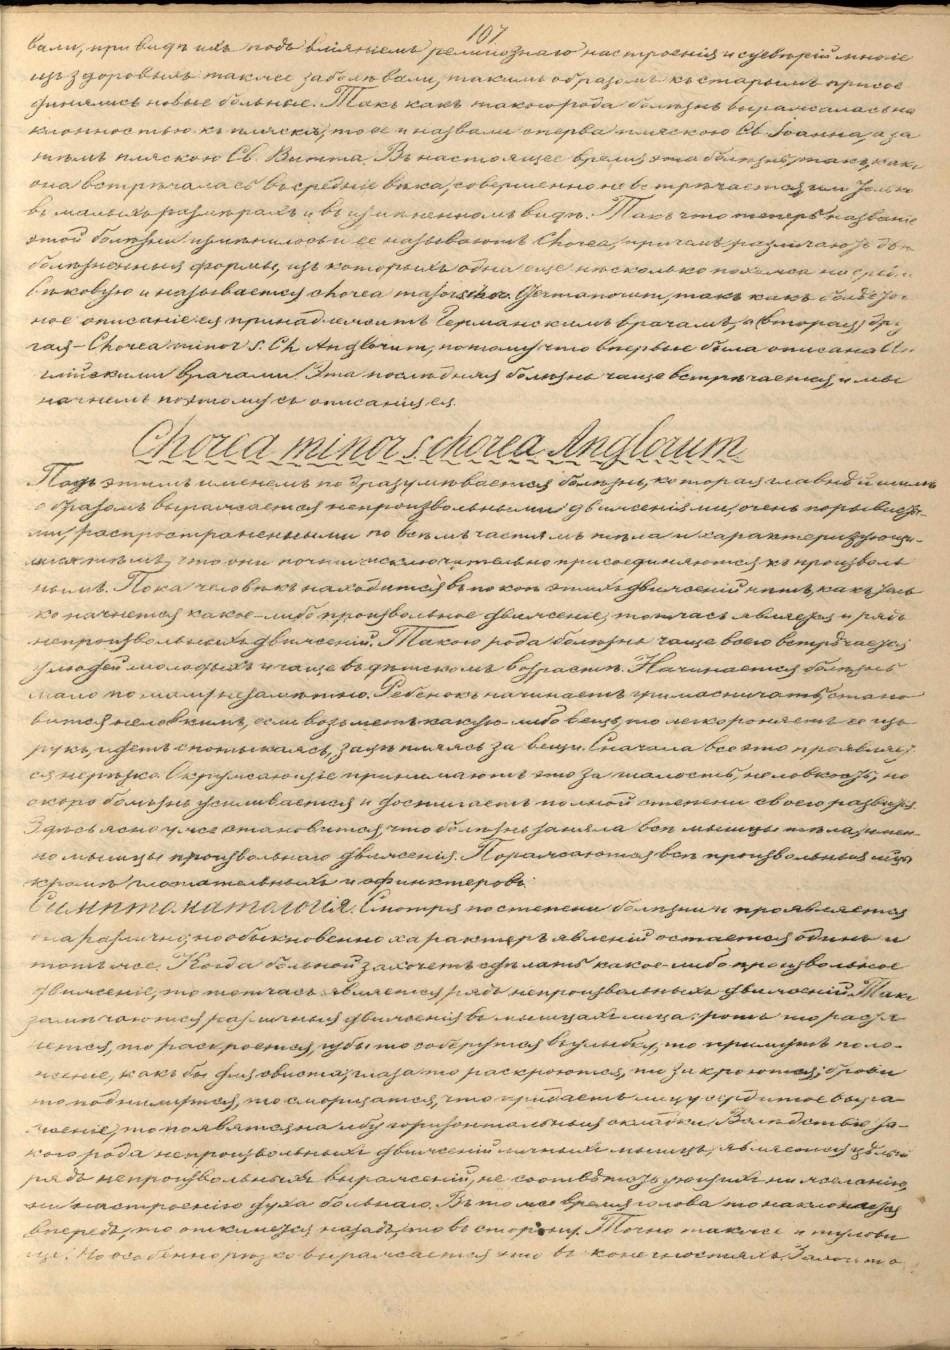 107
вали, при видѣ ихъ подъ вліяніемъ религіознаго настроенія и суевѣрій многіе
изъ здоровыхъ также заболѣвали, такимъ образомъ къ старымъ присое
динялись новые больные. Такъ какъ такого рода болѣзнь выражалась на
клонностью къ пляскѣ, то ее и назвали сперва пляскою Св. Іоанна, а за
тѣмъ пляскою Св. Витта. Въ настоящее время эта болѣзнь, такъ, какъ
она встрѣчалась въ средніе вѣка, совершенно не встрѣчается, или только
въ малыхъ размѣрахъ и въ измѣненномъ видѣ. Такъ что теперь названіе
этой болѣзни измѣнилось и ее называютъ Chorea, причемъ различаютъ двѣ
болѣзненныя формы, изъ которыхъ одна еще нѣсколько похожа на сред
вѣковую и называется chorea major Germanorum, такъ какъ
ное описаніе ея принадлежитъ Германскимъ врачамъ, а (вторая) дру
гая – Chorea minor s. Ch. Anglorum, потому что впервые была описана Ан
глійскими врачами. Эта послѣдняя болѣзнь чаще встрѣчается, и мы
начнемъ поэтому съ описанія ея.
Chorea minor s. chorea Anglorum
Подъ этимъ именемъ подразумѣвается болѣзнь, которая главнѣйшимъ
образомъ выражается непроизвольными движеніями, очень порывисты
ми, распространенными по всѣмъ частямъ тѣла и характеризующи-
мися тѣмъ, что они почти исключительно присоединяются къ произволь
нымъ. Пока человѣкъ находится въ покоѣ этихъ движеній нѣтъ, какъ толь
ко начнется какое-либо произвольное движеніе, тотчасъ является и рядъ
непроизвольныхъ движеній. Такого рода болѣзнь чаще всего встрѣчается
у людей молодыхъ и чаще въ дѣтскомъ возрастѣ. Начинается болѣзнь
мало по малу незамѣтно. Ребенокъ начинаетъ гримасничать, стано
вится неловкимъ, если возьметъ какую-либо вещь, то легко роняетъ ее изъ
рукъ, идетъ спотыкаясь, зацѣпляясь за вещи. Сначала все это проявляет
ся нерѣзко. Окружающіе принимаютъ это за шалость, неловкость, но
скоро болѣзнь усиливается и достигаетъ полной степени своего развитія.
Здѣсь ясно уже становится, что болѣзнь заняла всѣ мышцы тѣла, имен
но мышцы произвольнаго движенія. Поражаются всѣ произвольныя мцы
кромѣ глотательныхъ и сфинктеровъ.
Симптоматологія. Смотря по степени болѣзни и проявляется
она различно; но обыкновенно характеръ явленій остается одинъ и
тотъ же. Когда больной захочетъ сдѣлать какое-либо произвольное
движеніе, то тотчасъ является рядъ непроизвольныхъ движеній. Такъ
замѣчаются различныя движенія въ мышцахъ лица: ротъ то
то раскроется, губы то соберутся въ улыбку, то примутъ поло-
женіе, какъ бы для свиста; глаза то раскроются, то закроются; брови
то поднимутся, то сморщатся, что придаетъ лицу сердитое выра-
женіе, то появятся на лбу горизонтальныя складки. Вслѣдствіе та-
кого рода непроизвольныхъ движеній личныхъ мышцъ, является цѣлый
рядъ непроизвольныхъ выраженій, не соотвѣтствующихъ ни желанію,
ни настроенію духа больнаго. Въ то же время голова то наклоняется
впередъ, то откинется назадъ, то въ сторону. Точно также и тулови
ще. Но особенно рѣзко выражается это въ конечностяхъ.